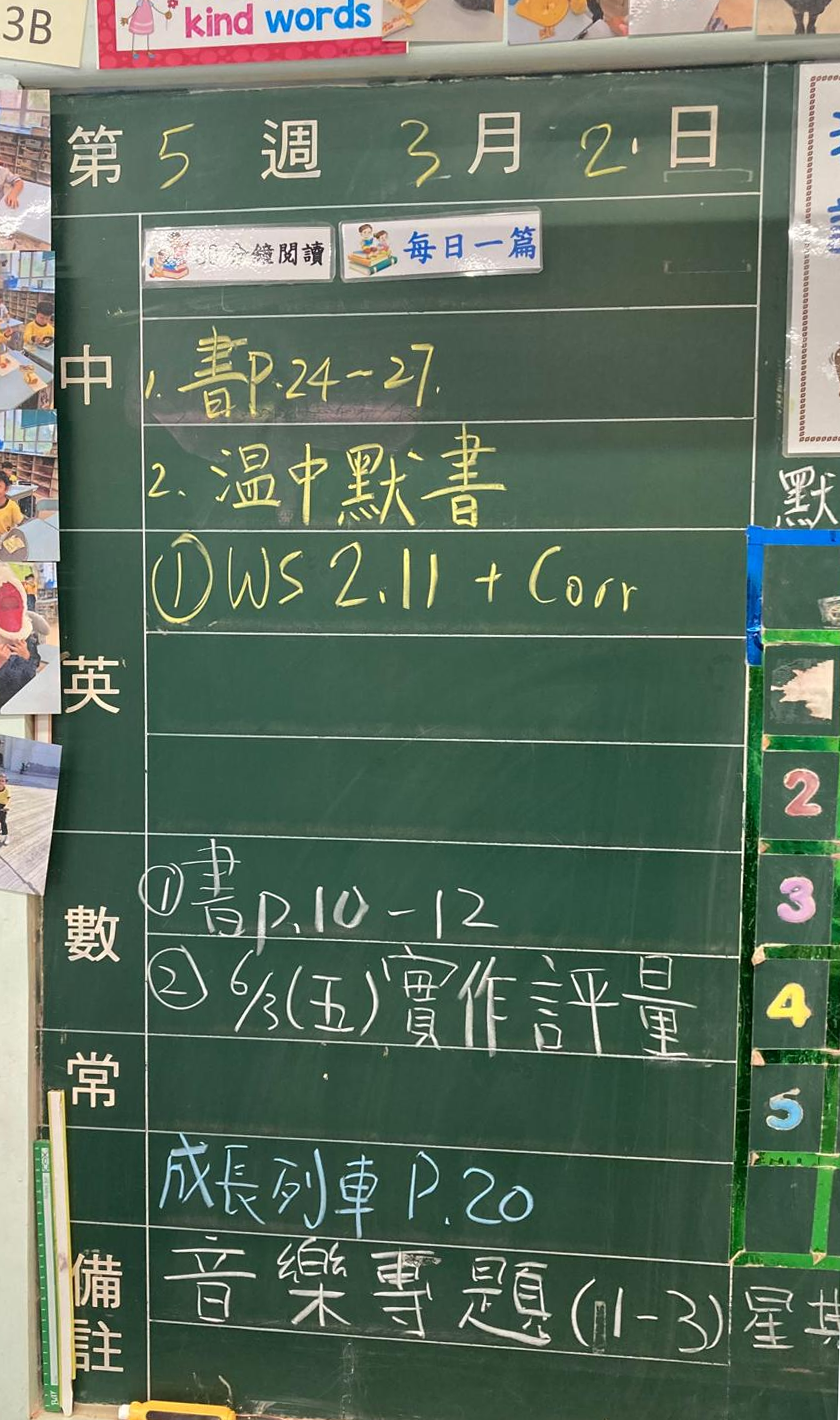 3B
kind words
第 5 週 3 月 2 日
分鐘閱讀 每日一篇
中
1. 書P.24~27.
2. 溫中默書
默
英
① WS 2.11 + Corr
數
① 書p.10-12
② 6/3(五)實作評量
常
成長列車 P.20
備註
音樂專題(11-3) 星
2
3
4
5